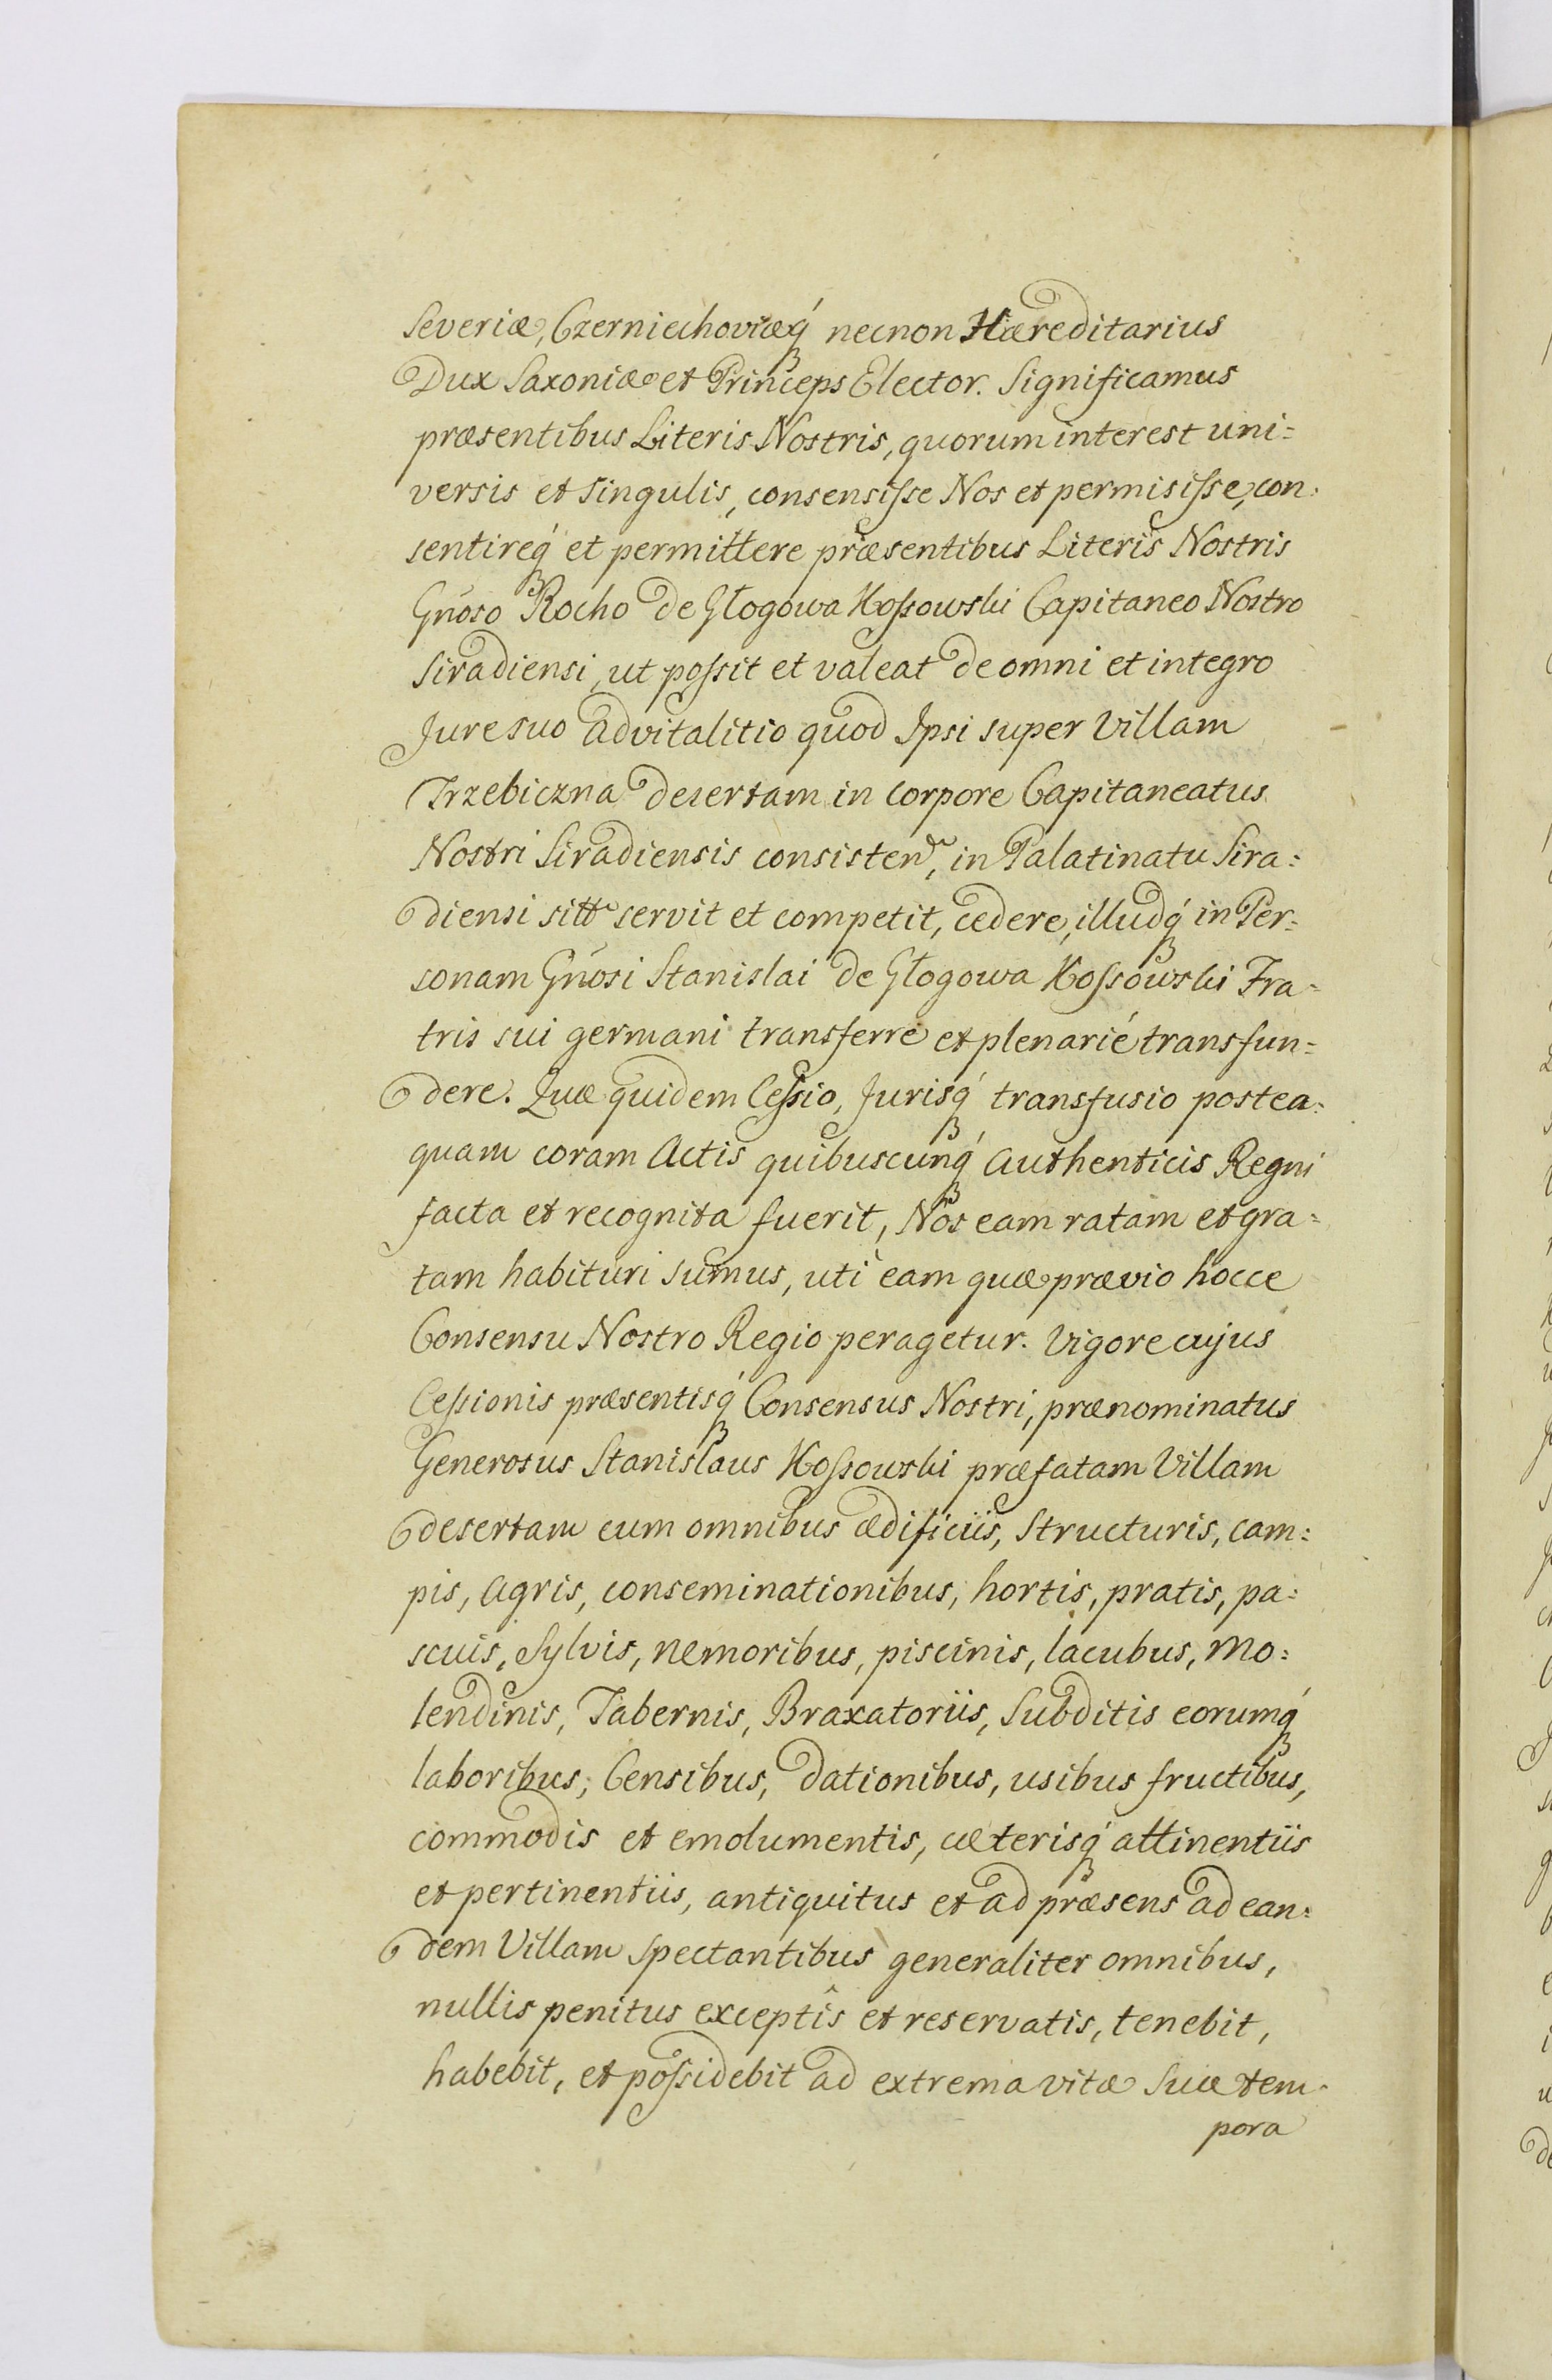 Severiæ, Czerniechoviæq́ necnon Hæreditarius
Dux Saxoniæ et Princeps Elector. Significamus
præsentibus Literis Nostris, quorum interest uni=
versis et singulis, consensiſse Nos et permisiſse, con=
sentireq́ et permittere præsentibus Literis Nostris
Gnoso Rocho de Głogowa Koſsowski Capitaneo Nostro
Siradiensi, ut poſsit et valeat de omni et integro
Jure suo advitalitio quod Ipsi super Villam
Trzebiczna desertam in corpore Capitaneatus
Nostri Siradiensis consisten, in Palatinatu Sira=
diensi sitt servit et competit, cedere, illudq́ in Per=
sonam Gnosi Stanislai de Głogowa Koſsowski Fra=
tris sui germani transferre et plenarié transfun=
dere. Quæ quidem Ceſsio, Jurisq́ transfusio postea=
quam coram Actis quibuscunq́ Authenticis Regni
facta et recognita fuerit, Nos eam ratam et gra=
tam habituri sumus, uti eam quæ prævio hocce
Consensu Nostro Regio peragetur. Vigore cujus
Ceſsionis præsentisq́ Consensus Nostri, prænominatus
Generosus Stanislaus Koſsowski præfatam Villam
desertam cum omnibus ædificiis, structuris, cam=
pis, agris, conseminationibus, hortis, pratis, pa=
scuis, Sylvis, nemoribus, piscinis, lacubus, mo=
lendinis, Tabernis, Braxatoriis, Subditis eorumq́
laboribus, Censibus, dationibus, usibus fructibus,
commodis et emolumentis, cæterisq́ attinentiis
et pertinentiis, antiquitus et ad præsens ad ean=
dem Villam spectantibus generaliter omnibus,
nullis penitus exceptîs et reservatis, tenebit,
habebit, et poſsidebit ad extrema vitæ suæ tem=
pora